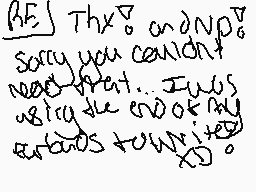 RE Thx! and Np!
sorry you couldnt
read that... I was
using the end of my
earbuds to write
XD